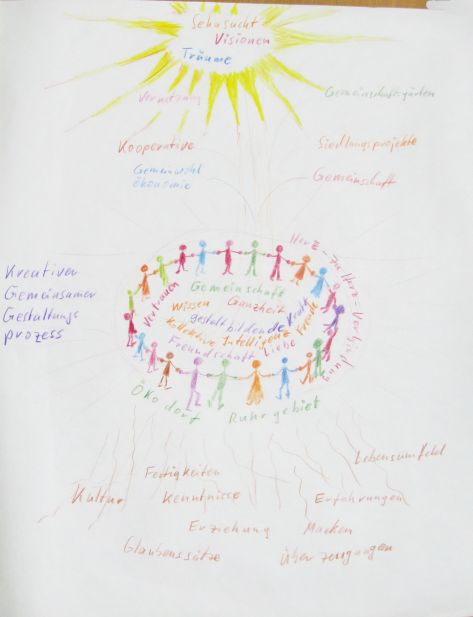 Sehnsucht
Visionen
Träume
Vernetzung
Gemeinschaftsgärten
Kooperative
Siedlungsprojekte
Gemeinwohl
ökonomie
Gemeinschaft
Herz-zu Herz-Verbindung
Kreativer
Gemeinsamer
Gestaltungs
prozess
Vertrauen
Gemeinschaft
Wissen Ganzheit
gestaltbildende Kraft
Kollektive Intelligenz Freude
Freundschaft Liebe
Ökodorf Ruhrgebiet
Lebensumfeld
Fertigkeiten
Kultur Kenntnisse Erfahrungen
Erziehung Macken
Glaubenssätze Überzeugungen